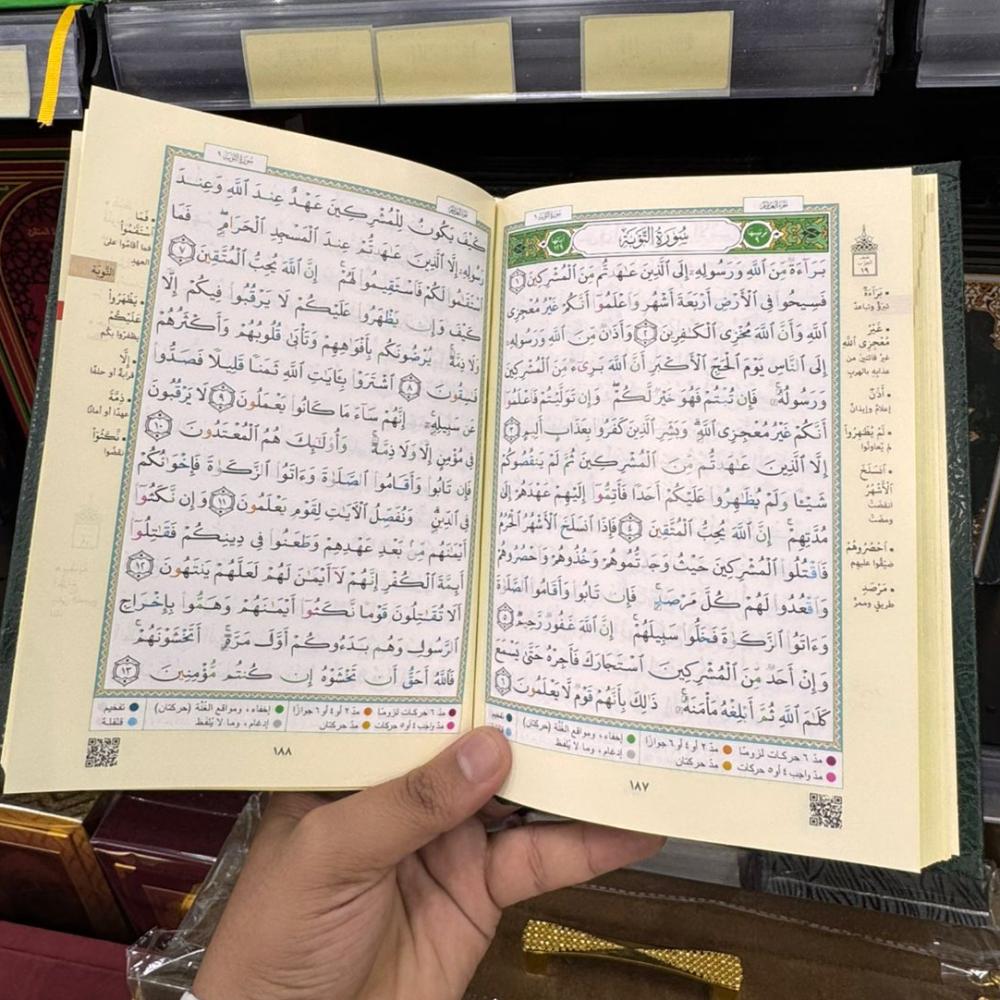 سُورَةُ التَّوْبَةِ ٩
سُورَةُ التَّوْبَةِ
بَرَآءَةٌ مِّنَ ٱللَّهِ وَرَسُولِهِۦٓ إِلَى ٱلَّذِينَ عَٰهَدتُّم مِّنَ ٱلْمُشْرِكِينَ ١
فَسِيحُوا۟ فِى ٱلْأَرْضِ أَرْبَعَةَ أَشْهُرٍ وَٱعْلَمُوٓا۟ أَنَّكُمْ غَيْرُ مُعْجِزِى
ٱللَّهِ وَأَنَّ ٱللَّهَ مُخْزِى ٱلْكَٰفِرِينَ ٢ وَأَذَٰنٌ مِّنَ ٱللَّهِ وَرَسُولِهِۦٓ
إِلَى ٱلنَّاسِ يَوْمَ ٱلْحَجِّ ٱلْأَكْبَرِ أَنَّ ٱللَّهَ بَرِىٓءٌ مِّنَ ٱلْمُشْرِكِينَ
وَرَسُولُهُۥ فَإِن تُبْتُمْ فَهُوَ خَيْرٌ لَّكُمْ وَإِن تَوَلَّيْتُمْ فَٱعْلَمُوٓا۟
أَنَّكُمْ غَيْرُ مُعْجِزِى ٱللَّهِ وَبَشِّرِ ٱلَّذِينَ كَفَرُوا۟ بِعَذَابٍ أَلِيمٍ ٣
إِلَّا ٱلَّذِينَ عَٰهَدتُّم مِّنَ ٱلْمُشْرِكِينَ ثُمَّ لَمْ يَنقُصُوكُمْ
شَيْـًٔا وَلَمْ يُظَٰهِرُوا۟ عَلَيْكُمْ أَحَدًا فَأَتِمُّوٓا۟ إِلَيْهِمْ عَهْدَهُمْ إِلَىٰ
مُدَّتِهِمْ إِنَّ ٱللَّهَ يُحِبُّ ٱلْمُتَّقِينَ ٤ فَإِذَا ٱنسَلَخَ ٱلْأَشْهُرُ ٱلْحُرُمُ
فَٱقْتُلُوا۟ ٱلْمُشْرِكِينَ حَيْثُ وَجَدتُّمُوهُمْ وَخُذُوهُمْ وَٱحْصُرُوهُمْ
وَٱقْعُدُوا۟ لَهُمْ كُلَّ مَرْصَدٍ فَإِن تَابُوا۟ وَأَقَامُوا۟ ٱلصَّلَوٰةَ
وَءَاتَوُا۟ ٱلزَّكَوٰةَ فَخَلُّوا۟ سَبِيلَهُمْ إِنَّ ٱللَّهَ غَفُورٌ رَّحِيمٌ ٥
وَإِنْ أَحَدٌ مِّنَ ٱلْمُشْرِكِينَ ٱسْتَجَارَكَ فَأَجِرْهُ حَتَّىٰ يَسْمَعَ
كَلَٰمَ ٱللَّهِ ثُمَّ أَبْلِغْهُ مَأْمَنَهُۥ ذَٰلِكَ بِأَنَّهُمْ قَوْمٌ لَّا يَعْلَمُونَ ٦
بَرَآءَةٌ
غَيْرُ
مُعْجِزِى ٱللَّهِ
أَذَٰنٌ
لَمْ يُظَٰهِرُوا۟
ٱنسَلَخَ
ٱلْأَشْهُرُ
ٱحْصُرُوهُمْ
ضيقوا عليهم
مَرْصَدٍ
مدّ ٦ حركات لزومًا مدّ ٢ أو ٤ أو ٦ جوازًا إخفاء، ومواقع الغُنَّة (حركتان) تفخيم
مدّ واجب ٤ أو ٥ حركات مدّ حركتان إدغام، وما لا يُلفظ
١٨٧
سُورَةُ التَّوْبَةِ ٩
كَيْفَ يَكُونُ لِلْمُشْرِكِينَ عَهْدٌ عِندَ ٱللَّهِ وَعِندَ
رَسُولِهِۦٓ إِلَّا ٱلَّذِينَ عَٰهَدتُّمْ عِندَ ٱلْمَسْجِدِ ٱلْحَرَامِ فَمَا
ٱسْتَقَٰمُوا۟ لَكُمْ فَٱسْتَقِيمُوا۟ لَهُمْ إِنَّ ٱللَّهَ يُحِبُّ ٱلْمُتَّقِينَ ٧
كَيْفَ وَإِن يَظْهَرُوا۟ عَلَيْكُمْ لَا يَرْقُبُوا۟ فِيكُمْ إِلًّا
وَلَا ذِمَّةً يُرْضُونَكُم بِأَفْوَٰهِهِمْ وَتَأْبَىٰ قُلُوبُهُمْ وَأَكْثَرُهُمْ
فَٰسِقُونَ ٨ ٱشْتَرَوْا۟ بِـَٔايَٰتِ ٱللَّهِ ثَمَنًا قَلِيلًا فَصَدُّوا۟
عَن سَبِيلِهِۦٓ إِنَّهُمْ سَآءَ مَا كَانُوا۟ يَعْمَلُونَ ٩ لَا يَرْقُبُونَ
فِى مُؤْمِنٍ إِلًّا وَلَا ذِمَّةً وَأُو۟لَٰٓئِكَ هُمُ ٱلْمُعْتَدُونَ ١٠
فَإِن تَابُوا۟ وَأَقَامُوا۟ ٱلصَّلَوٰةَ وَءَاتَوُا۟ ٱلزَّكَوٰةَ فَإِخْوَٰنُكُمْ
فِى ٱلدِّينِ وَنُفَصِّلُ ٱلْـَٔايَٰتِ لِقَوْمٍ يَعْلَمُونَ ١١ وَإِن نَّكَثُوٓا۟
أَيْمَٰنَهُم مِّنۢ بَعْدِ عَهْدِهِمْ وَطَعَنُوا۟ فِى دِينِكُمْ فَقَٰتِلُوٓا۟
أَئِمَّةَ ٱلْكُفْرِ إِنَّهُمْ لَآ أَيْمَٰنَ لَهُمْ لَعَلَّهُمْ يَنتَهُونَ ١٢
أَلَا تُقَٰتِلُونَ قَوْمًا نَّكَثُوٓا۟ أَيْمَٰنَهُمْ وَهَمُّوا۟ بِإِخْرَاجِ
ٱلرَّسُولِ وَهُم بَدَءُوكُمْ أَوَّلَ مَرَّةٍ أَتَخْشَوْنَهُمْ
فَٱللَّهُ أَحَقُّ أَن تَخْشَوْهُ إِن كُنتُم مُّؤْمِنِينَ ١٣
التَّوبَة
فَمَا
ٱسْتَقَٰمُوا۟
فما أقاموا على
العهد
يَظْهَرُوا۟
عَلَيْكُمْ
يظفروا بكم
إِلًّا
قرابة أو حلفًا
ذِمَّةً
عهدًا أو أمانًا
نَّكَثُوٓا۟
نقضوا
مدّ ٦ حركات لزومًا مدّ ٢ أو ٤ أو ٦ جوازًا إخفاء، ومواقع الغُنَّة (حركتان) تفخيم
مدّ واجب ٤ أو ٥ حركات مدّ حركتان إدغام، وما لا يُلفظ قلقلة
١٨٨